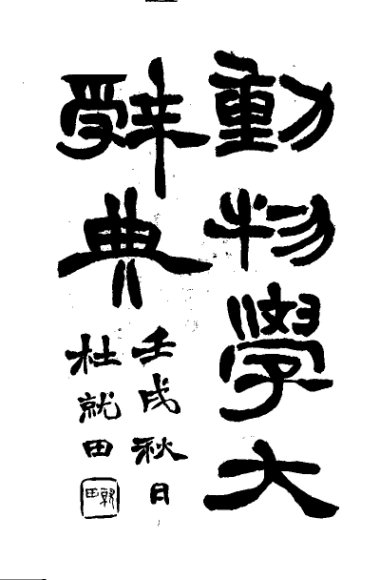 動物學大
辭典
壬戌秋日
杜就田
就田